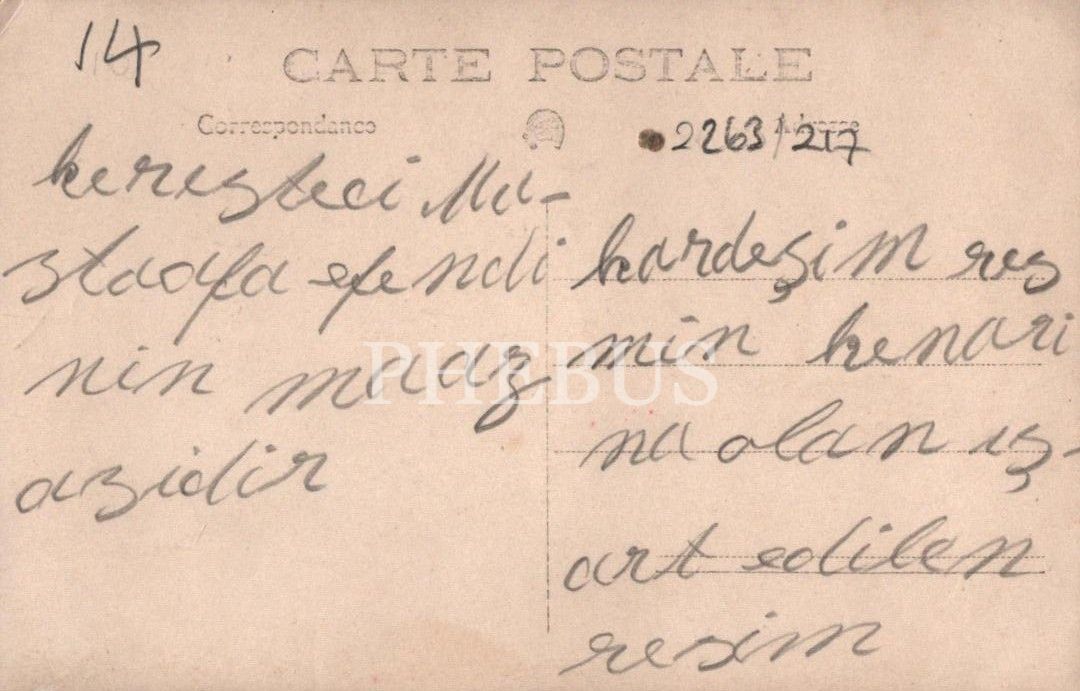 14
CARTE POSTALE
Correspondance
Adresse
2263/217
keresteci Mu-
staafa efendi
nin maaz
azidir
kardeşim res
min kenari
na olan iş-
art edilen
resim
PHEBUS